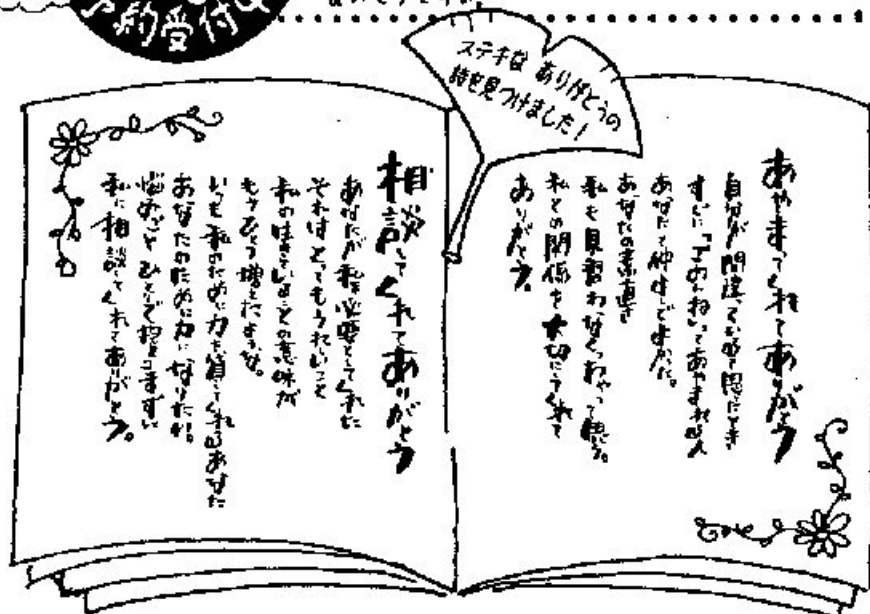 予約受付中
ステキな ありがとうの
詩を見つけました!
あやまってくれてありがとう
自分が間違っていると思ったとき
すぐに「ごめんね」ってあやまれる人
あなたと仲よしでよかった。
あなたの素直さ
私も見習わなくっちゃって思う。
私との関係を大切にしてくれて
ありがとう。
相談してくれてありがとう
あなたが私を必要としてくれた
それはとってもうれしいこと
私の生きていることの意味が
もうひとつ増えたような。
いつも私のために力を貸してくれるあなた
あなたのために力になりたい。
悩みごと ひとりで抱えこまずに
私に相談してくれてありがとう。